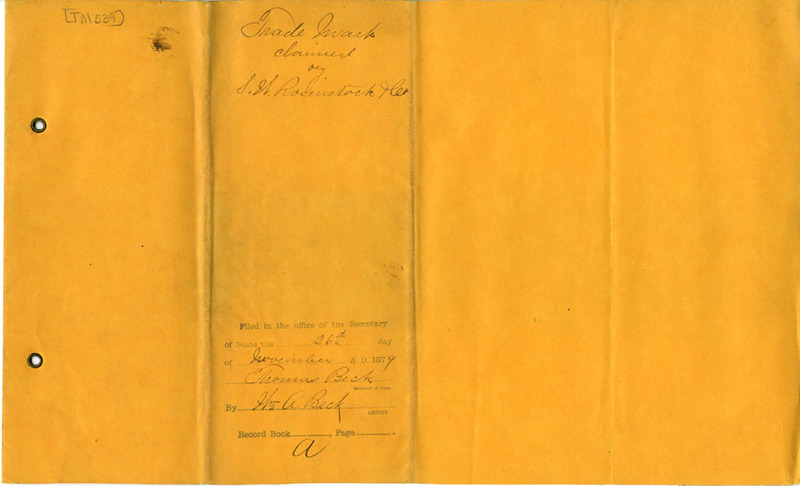 [TM 539]
Trade Mark
claimed
by
S. W. Rosenstock & Co
Filed in the office of the Secretary
of State the 26th day
of November A. D. 1879
Thomas Beck
Secretary of State
By Wm A Beck
DEPUTY.
Record Book, Page.
A